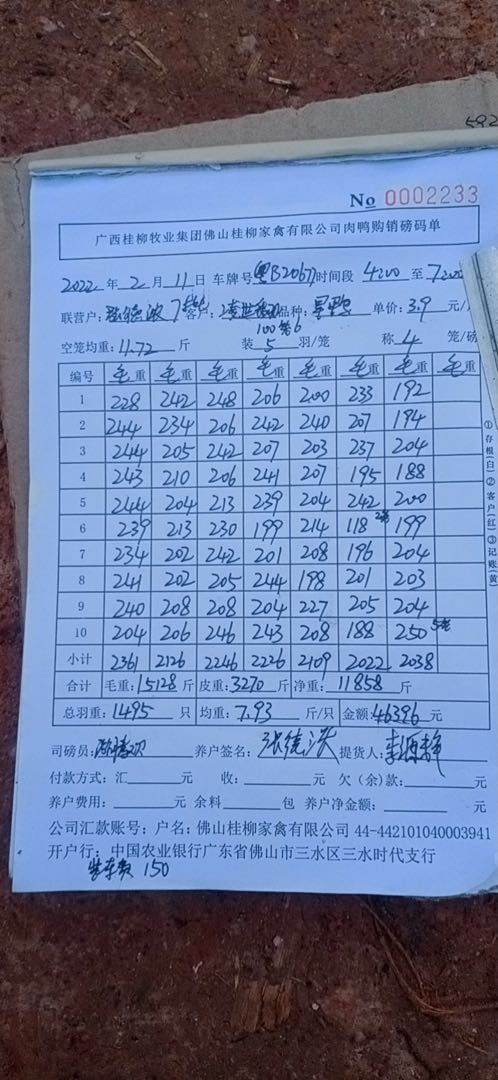 592
No 0002233
广西桂柳牧业集团佛山桂柳家禽有限公司肉鸭购销磅码单
2022年2月11日 车牌号粤B2067 时间段4200至7200
联营户: 客户: 品种: 单价:3.9元/
100笼6
空笼均重:11.72斤 装5羽/笼 称4笼/磅
编号 毛重 毛重 毛重 毛重 毛重 毛重 毛重 毛重
1 228 242 248 206 200 233 192
2 244 234 206 242 240 207 194
3 244 205 242 207 203 237 204
4 243 210 206 241 207 195 188
5 244 204 213 239 204 242 200
6 239 213 230 199 214 118 199
7 234 202 242 201 208 196 204
8 241 202 205 244 198 201 203
9 240 208 208 204 227 205 204
10 204 206 246 243 208 188 250
小计 2361 2126 2246 2226 2109 2022 2038
合计 毛重:15128斤 皮重:3270斤 净重:11858斤
总羽重:1495只 均重:7.93斤/只 金额:46396元
司磅员: 养户签名: 提货人:
付款方式:汇 元 收: 元 欠(余)款: 元
养户费用: 元 余料 包 养户净金额: 元
公司汇款账号:户名:佛山桂柳家禽有限公司 44-442101040003941
开户行:中国农业银行广东省佛山市三水区三水时代支行
装车费 150
①存根(白)②客户(红)③记账(黄)